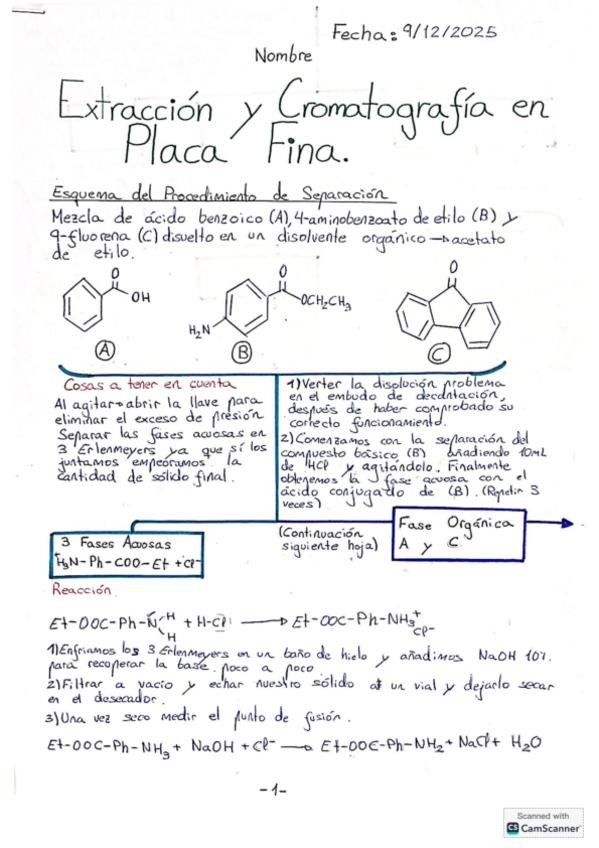 Fecha: 9/12/2025
Nombre
Extracción y Cromatografía en
Placa Fina.
Esquema del Procedimiento de Separación
Mezcla de ácido benzoico (A), 4-aminobenzoato de etilo (B) y
9-fluorena (C) disuelto en un disolvente orgánico → acetato
de etilo.
O
OH
A
O
OCH₂CH₃
H₂N
B
O
C
Cosas a tener en cuenta
Al agitar → abrir la llave para
eliminar el exceso de presión
Separar las fases acuosas en
3 Erlenmeyers ya que si los
juntamos empeoramos la
cantidad de sólido final.
1) Verter la disolución problema
en el embudo de decantación,
después de haber comprobado su
correcto funcionamiento.
2) Comenzamos con la separación del
compuesto básico (B) añadiendo 10mL
de HCl y agitándolo. Finalmente
obtenemos la fase acuosa con el
ácido conjugado de (B). (Repetir 3
veces)
3 Fases Acuosas
⁺H₃N-Ph-COO-Et + Cl⁻
(Continuación
siguiente hoja)
Fase Orgánica
A y C
Reacción
Et-OOC-Ph-N̈ H H + H-Cl → Et-OOC-Ph-NH₃⁺ Cl⁻
1) Enfriamos los 3 Erlenmeyers en un baño de hielo y añadimos NaOH 10%.
para recuperar la base. poco a poco
2) Filtrar a vacío y echar nuestro sólido a un vial y dejarlo secar
en el desecador.
3) Una vez seco medir el punto de fusión.
Et-OOC-Ph-NH₃ + NaOH + Cl⁻ → Et-OOC-Ph-NH₂ + NaCl + H₂O
-1-
Scanned with
CS CamScanner